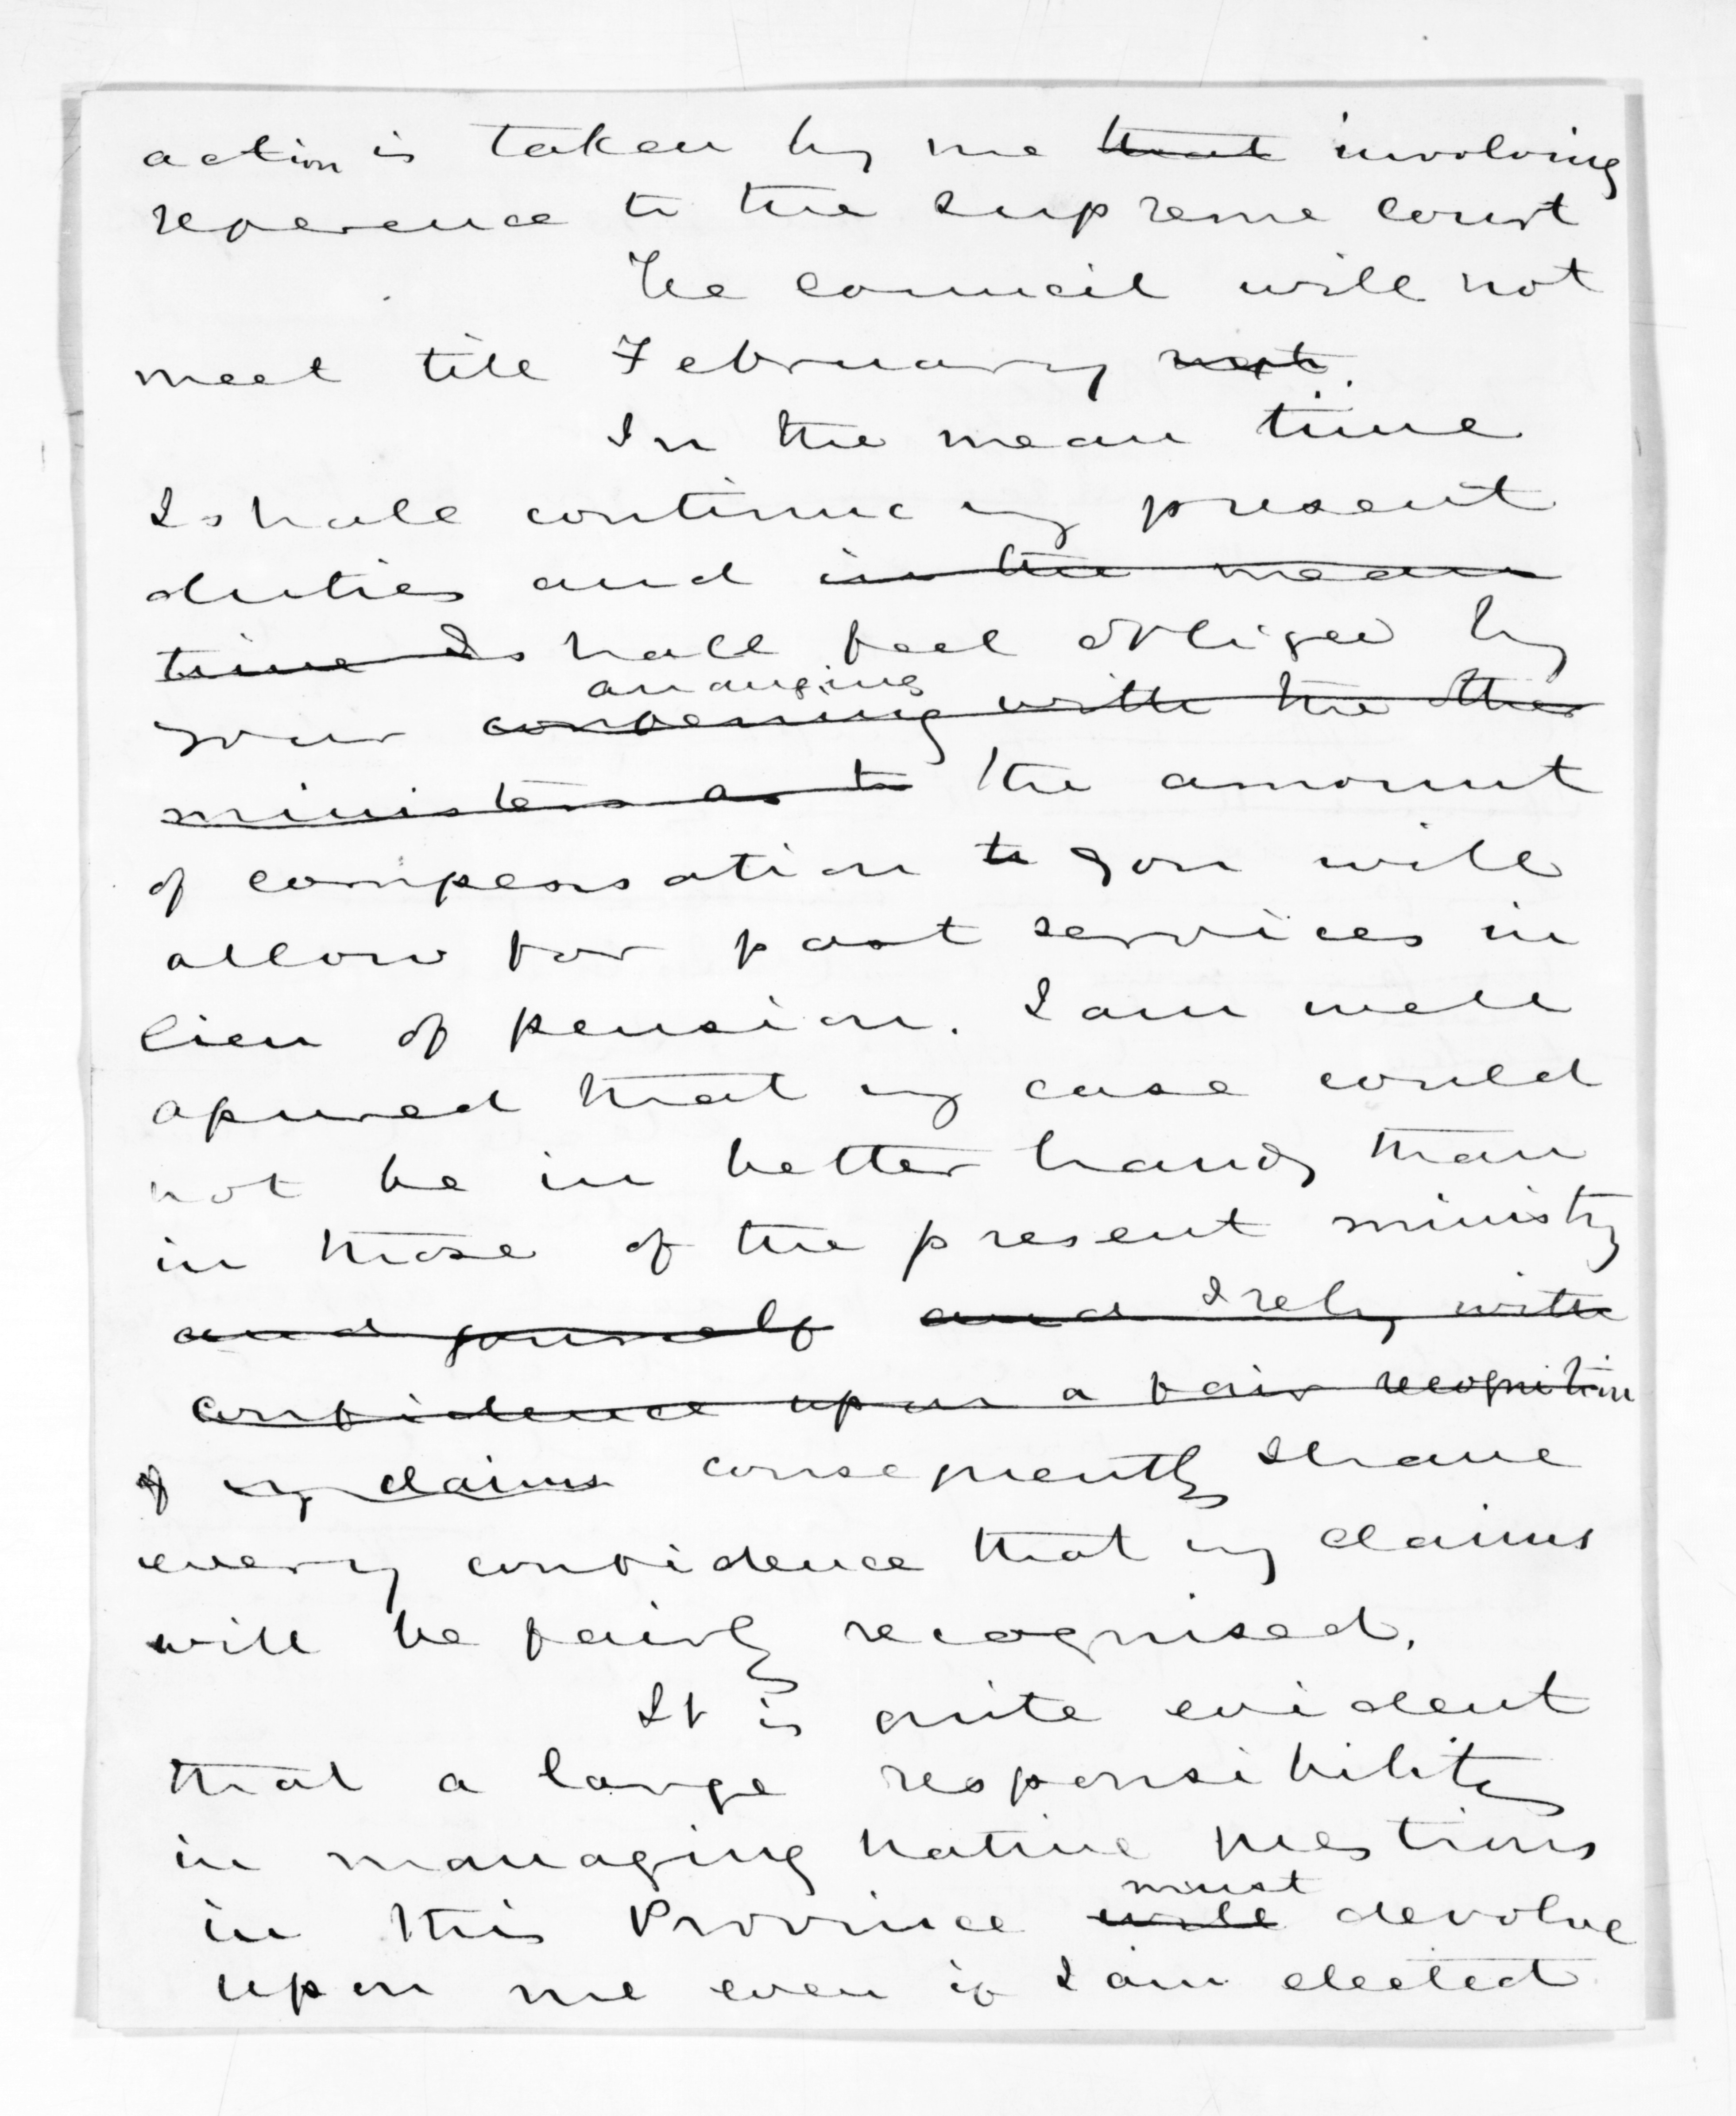 action is taken by me that involving
reference to the Supreme Court
The Council will not
meet till February next.
In the mean time
I shall continue my present
duties and in the mean
time I shall feel obliged by
arranging
your conferring with the other
ministers as to the amount
of compensation to you will
allow for past services in
lieu of pension. I am well
assured that my case could
not be in better hands than
in those of the present ministry
and yourself and I rely with
confidence upon a fair recognition
of my claims consequently I have
every confidence that my claims
will be fairly recognised.
It is quite evident
that a large responsibility
in managing native questions
must
in this Province will devolve
upon me even if I am elected